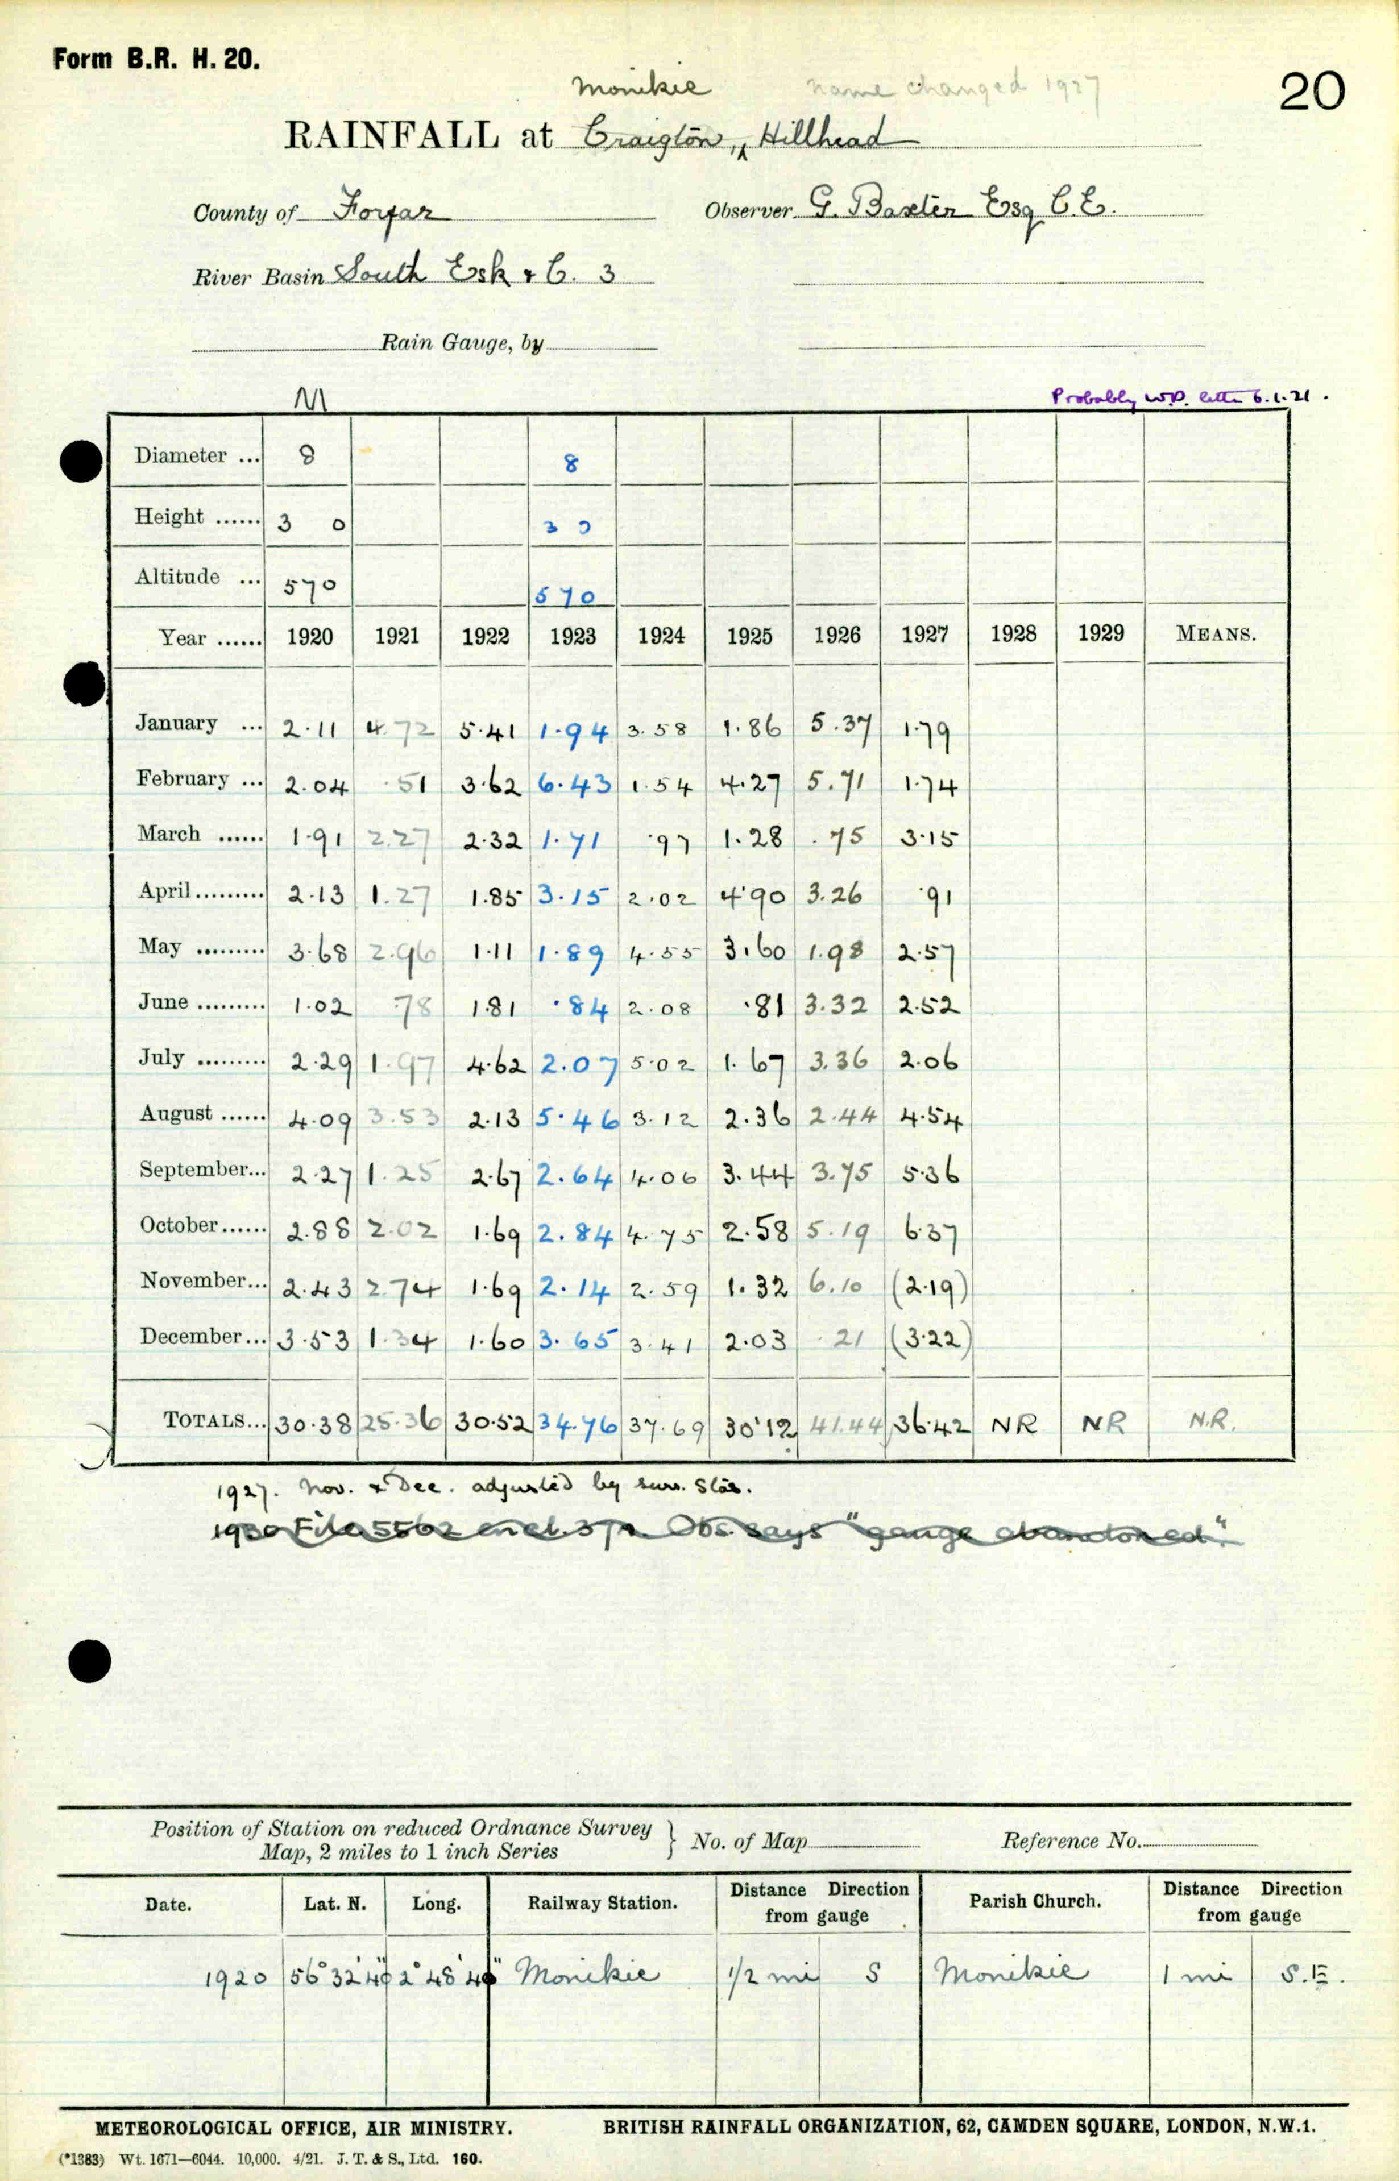 Form B.R. H. 20.
20
Monikie name changed 1927
RAINFALL at Craigton, ^ Hillhead
County of Forfar Observer G. Baxter Esq C.E.
River Basin South Esk & C. 3
Rain Gauge, by
M
Probably W.D. letter 6.1.21.
Diameter ... 8 8
Height ...... 3 0 3 0
Altitude ... 570 570
Year ...... 1920 1921 1922 1923 1924 1925 1926 1927 1928 1929 MEANS.
January ... 2.11 4.72 5.41 1.94 3.58 1.86 5.37 1.79
February ... 2.04 .51 3.62 6.43 1.54 4.27 5.71 1.74
March ...... 1.91 2.27 2.32 1.71 .97 1.28 .75 3.15
April ......... 2.13 1.27 1.85 3.15 2.02 4.90 3.26 .91
May ......... 3.68 2.96 1.11 1.89 4.55 3.60 1.98 2.57
June ......... 1.02 .78 1.81 .84 2.08 .81 3.32 2.52
July ......... 2.29 1.97 4.62 2.07 5.02 1.67 3.36 2.06
August ...... 4.09 3.53 2.13 5.46 3.12 2.36 2.44 4.54
September... 2.27 1.25 2.67 2.64 4.06 3.44 3.75 5.36
October...... 2.88 2.02 1.69 2.84 4.75 2.58 5.19 6.37
November... 2.43 2.74 1.69 2.14 2.59 1.32 6.10 (2.19)
December... 3.53 1.34 1.60 3.65 3.41 2.03 .21 (3.22)
TOTALS... 30.38 25.36 30.52 34.76 37.69 30.12 41.44 36.42 NR NR N.R.
1927. Nov. & Dec. adjusted by surr. Stns.
1930 File 5562 encl. 37A. Obs. says "gauge abandoned".
Position of Station on reduced Ordnance Survey Map, 2 miles to 1 inch Series } No. of Map Reference No.
Date. Lat. N. Long. Railway Station. Distance Direction from gauge Parish Church. Distance Direction from gauge
1920 56° 32' 40" 2° 48' 40" Monikie 1/2 mi S Monikie 1 mi S.E.
METEOROLOGICAL OFFICE, AIR MINISTRY. BRITISH RAINFALL ORGANIZATION, 62, CAMDEN SQUARE, LONDON, N.W.1.
(*1383) Wt. 1671—6044. 10,000. 4/21. J. T. & S., Ltd. 160.